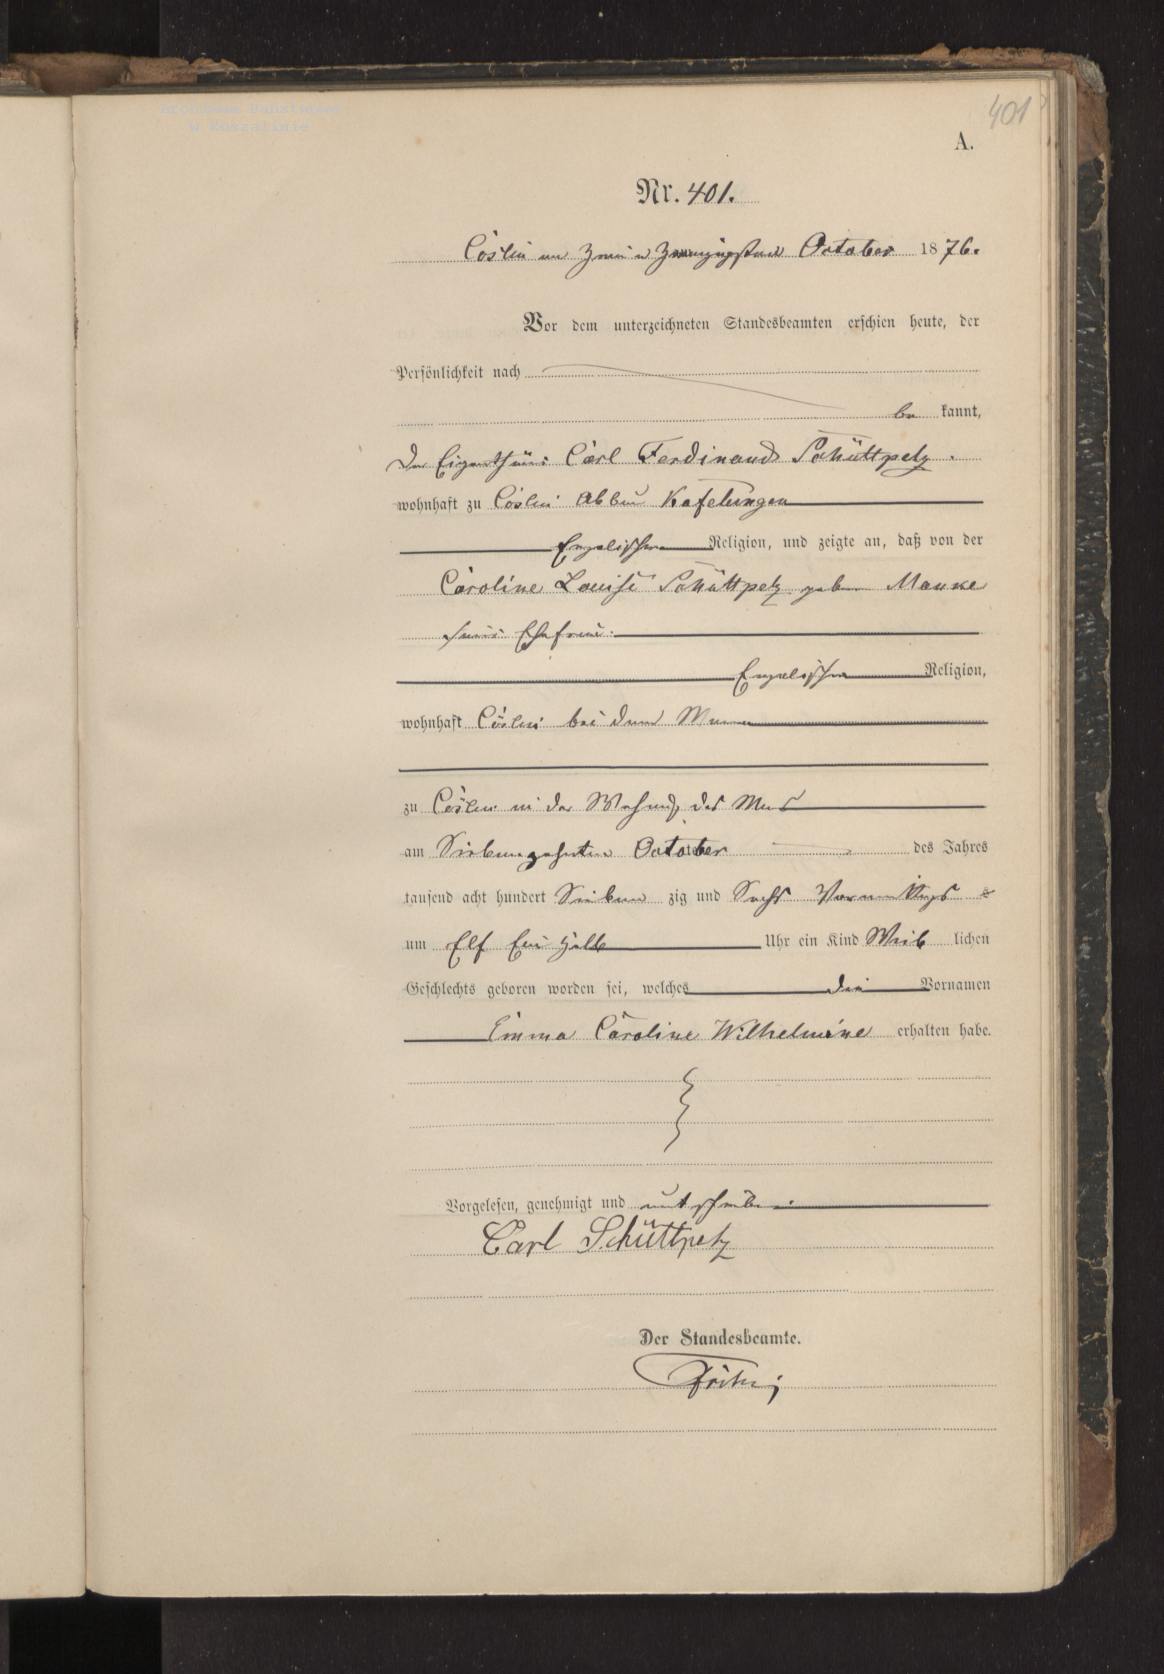 Archiwum Państwowe
w Koszalinie
401
A.
Nr. 401.
Cöslin am Zwei u Zwanzigsten October 1876.
Vor dem unterzeichneten Standesbeamten erschien heute, der
Persönlichkeit nach
be kannt,
Der Eigenthümer Carl Ferdinand Schüttpelz
wohnhaft zu Cöslin Abbau Kafelungen
Religion, und zeigte an, daß von der
Caroline Louise Schüttpelz geboren Manke
seiner Ehefrau
Religion,
wohnhaft Cöslin bei dem Manne
zu Cöslin in der Wohnung des
am Siebenzehnten October des Jahres
tausend acht hundert Sieben zig und Sechs Vormittags
um Elf Ein halb Uhr ein Kind Weib lichen
Geschlechts geboren worden sei, welches die Vornamen
Emma Caroline Wilhelmine erhalten habe.
Vorgelesen, genehmigt und unterschrieben
Carl Schüttpelz
Der Standesbeamte.